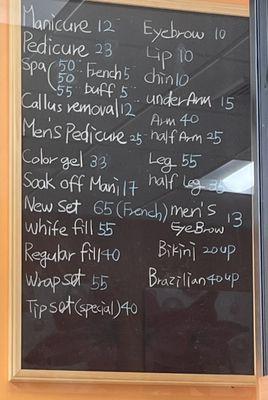 Manicure 12
Pedicure 23
Spa 50 French 5
50 buff 5
55
Callus removal 12
Men's Pedicure 25
Color gel 33
Soak off Mani 17
New set 65 (French)
White fill 55
Regular fill 40
Wrap set 55
Tip set (special) 40
Eyebrow 10
Lip 10
chin 10
underArm 15
Arm 40
half Arm 25
Leg 55
half Leg
men's 13
EyeBrow
Bikini 20 up
Brazilian 40 up